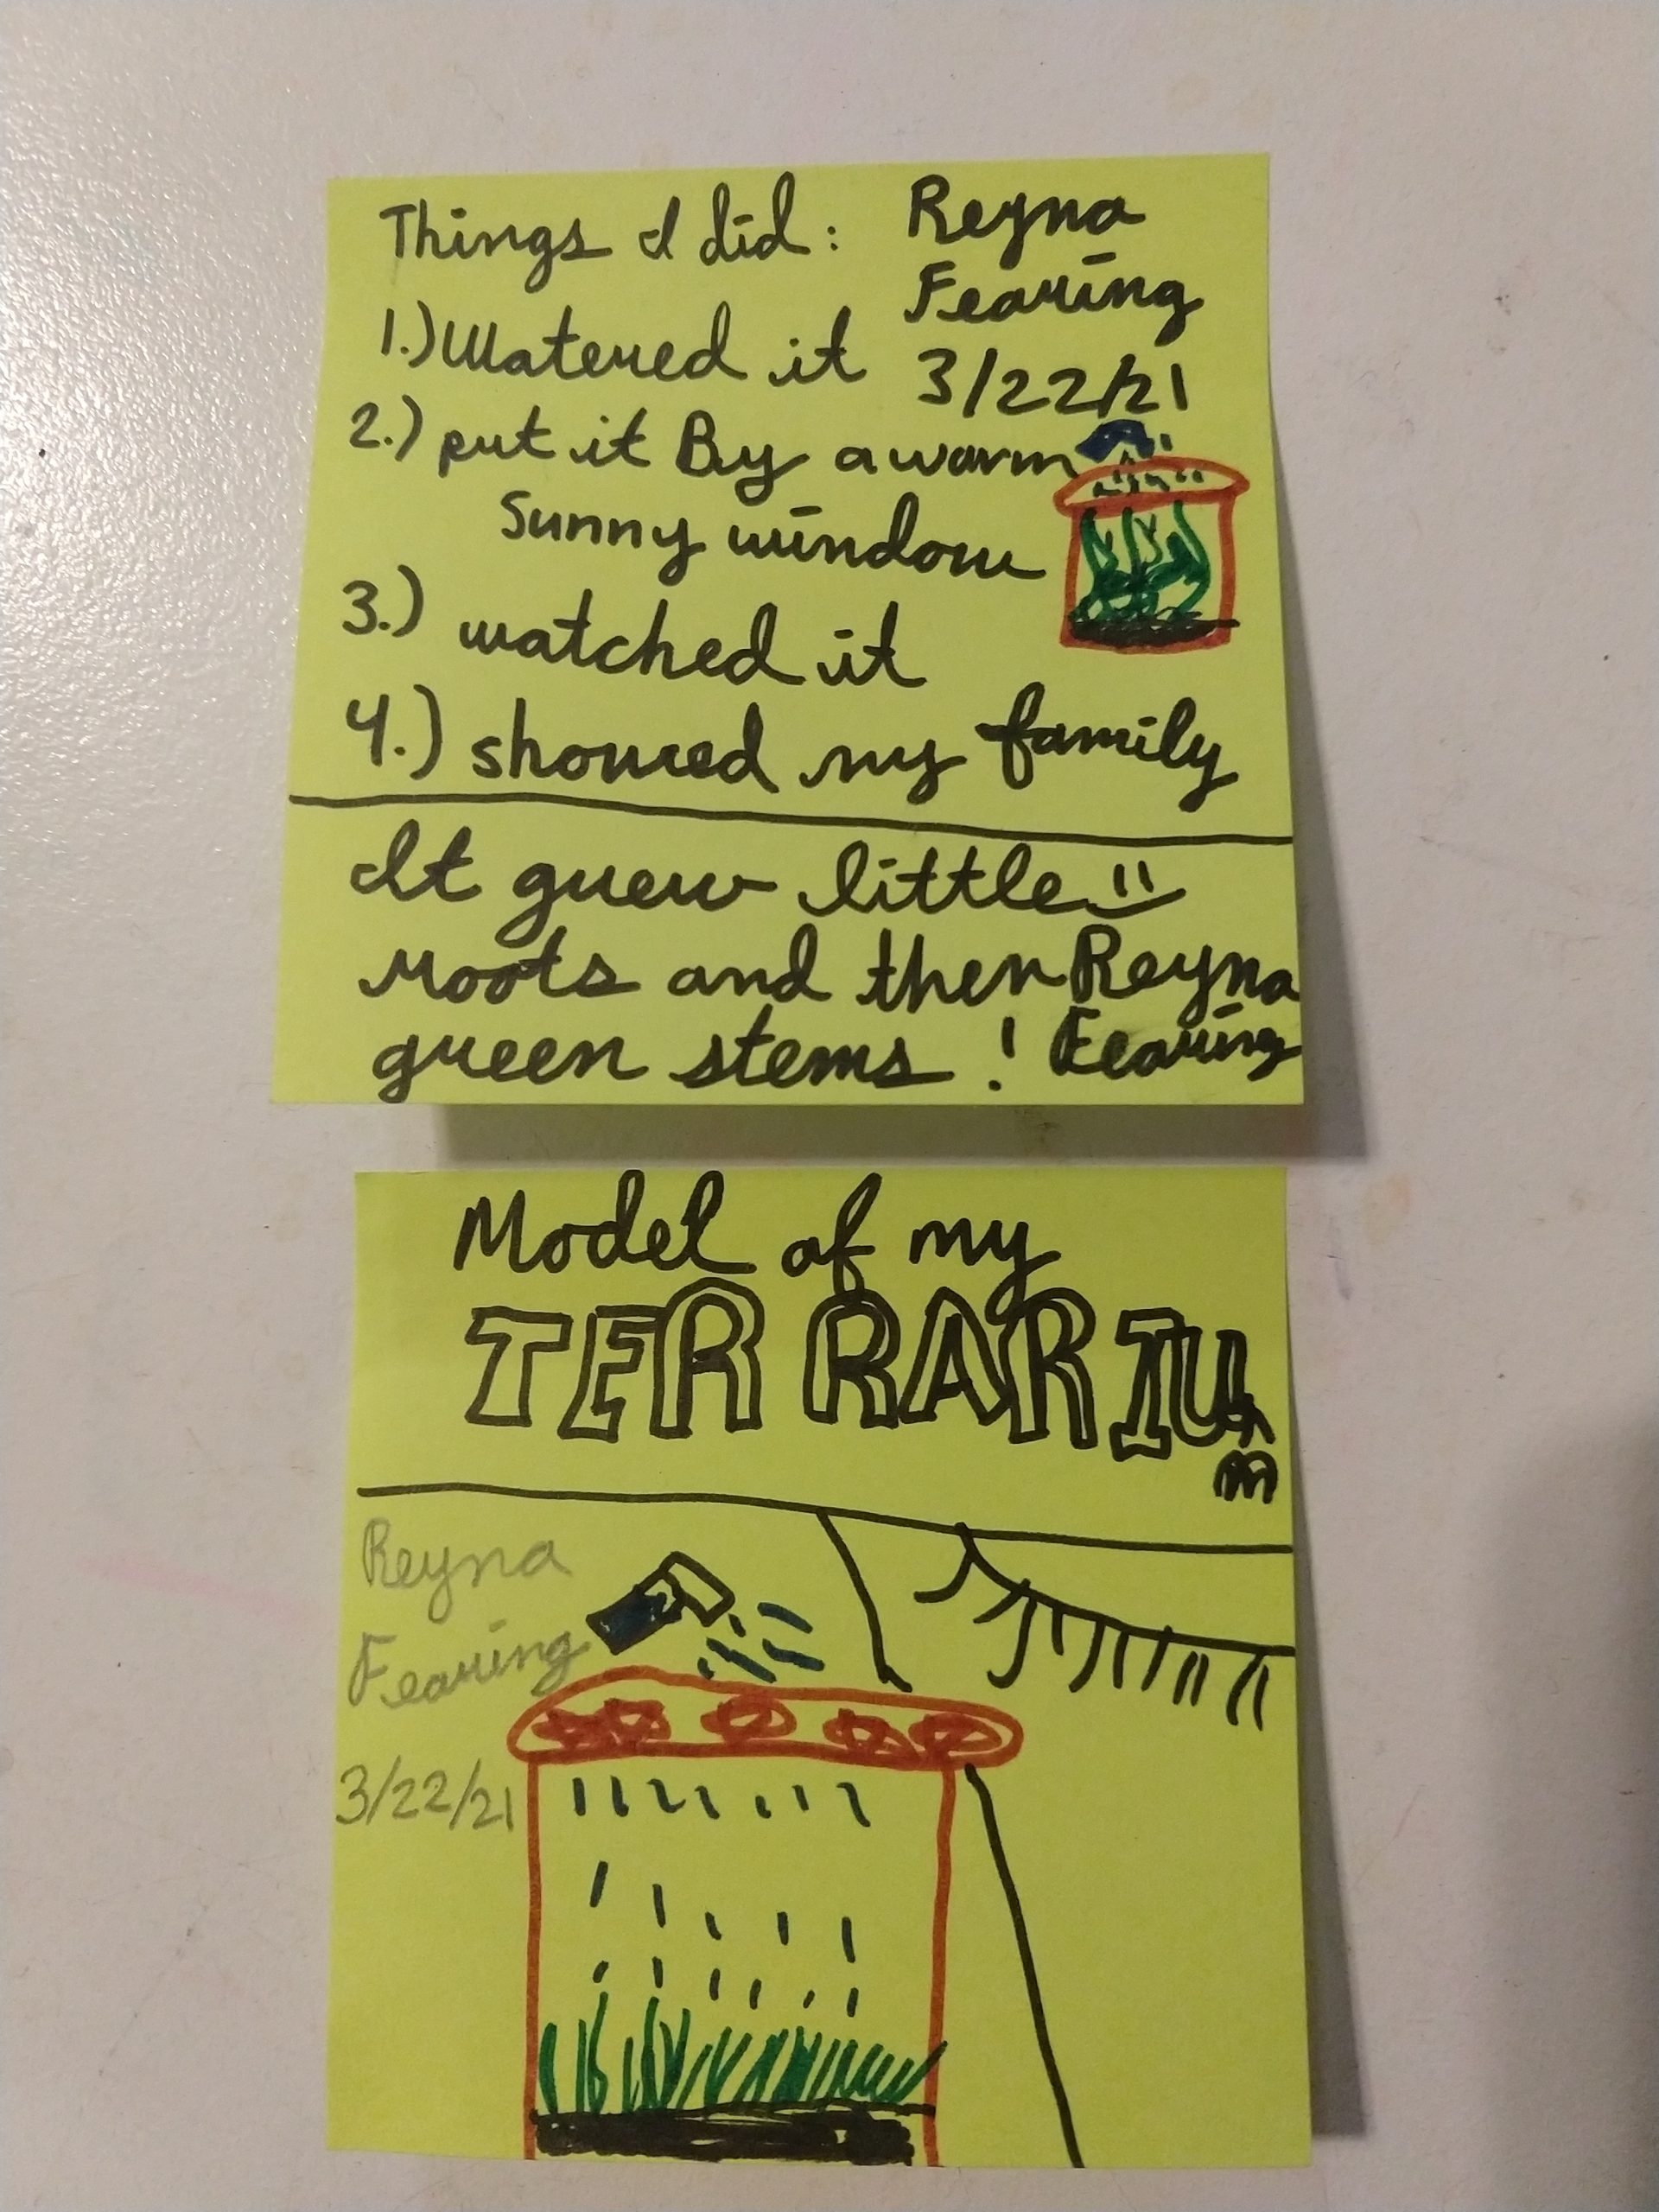 Things I did:
Reyna
Fearing
3/22/21
1.) Watered it
2.) put it By a warm
sunny window
3.) watched it
4.) showed my family
It grew little
roots and then
green stems !
Reyna
Fearing
Model of my
TERRARIUm
Reyna
Fearing
3/22/21